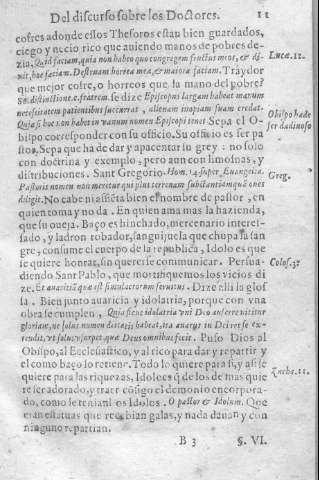 Del discurso sobre los Doctores. 11
cofres adonde ellos Thesoros estan bien guardados,
ciego y necio rico que auiendo manos de pobres de-
zia, Quid faciam, quia non habeo quo congregem fructus meos, & di-
xit, hoc faciam. Destruam horrea mea, & maiora faciam. Traydor
Lucæ. 12.
que mejor cofre, o horreos que la mano del pobre?
se dize Episcopus largam habeat manum
necessitatem patientibus succurrat, alienam inopiam suam credat.
Quia si hoc non habet in vanum nomen Episcopi tenet Sepa el O-
Obispo ha de
ser dadiuoso
bispo corresponder con su officio. Su officio es ser pa
stor, Sepa que ha de dar y apacentar su grey: no solo
con doctrina y exemplo, pero aun con limosnas, y
distribuciones. Sant Gregorio. Hom. 14. super Euangelia.
Greg.
Pastoris nomen non meretur qui plus terrenam substantiam quã oues
diligit. No cabe ni assiẽta bien el nombre de pastor, en
quien toma y no da. En quien ama mas la hazienda,
que su oueja. Baço es hinchado, mercenario interes-
sado, y ladron robador, sanguijuela que chupa la san
gre, consume el cuerpo de la republica, Idolo es que
se quiere honrar, sin quererse communicar. Persua-
diendo Sant Pablo, que mortifiquemos los vicios di
Colos. 3.
ze. Et auaritiã quæ est simulacrorum seruitus. Dize alli la glos
sa. Bien junto auaricia y idolatria, porque con vna
obra se cumplen,
Deus omnibus fecit. Puso Dios al
Obispo, al Ecclesiastico, y al rico para dar y repartir y
el como baço lo retiene. Todo lo quiere para si, y assi se
quiere para si riquezas, Idolo es q̃ de los de mas quie
Zacha. 11.
re ser adorado, y traer cõsigo el demonio encorpora-
do, como se tenian los Idolos. O pastor & Idolum. Que
eran estatuas que recebian galas, y nada dauan y con
ninguno repartian.
B 3 §. VI.